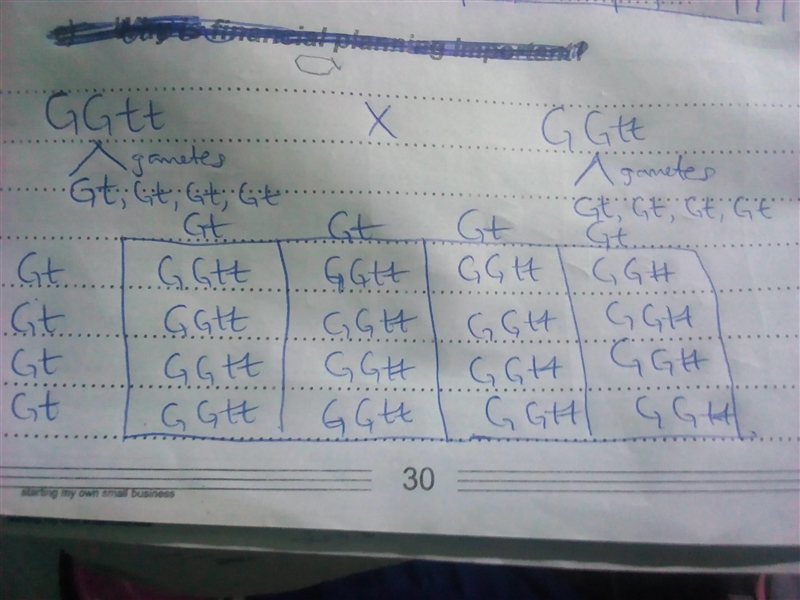 financial planning important?
GGtt X GGtt
gametes gametes
Gt, Gt, Gt, Gt Gt, Gt, Gt, Gt
Gt Gt Gt Gt
Gt GGtt GGtt GGtt GGtt
Gt GGtt GGtt GGtt GGtt
Gt GGtt GGtt GGtt GGtt
Gt GGtt GGtt GGtt GGtt
30
starting my own small business